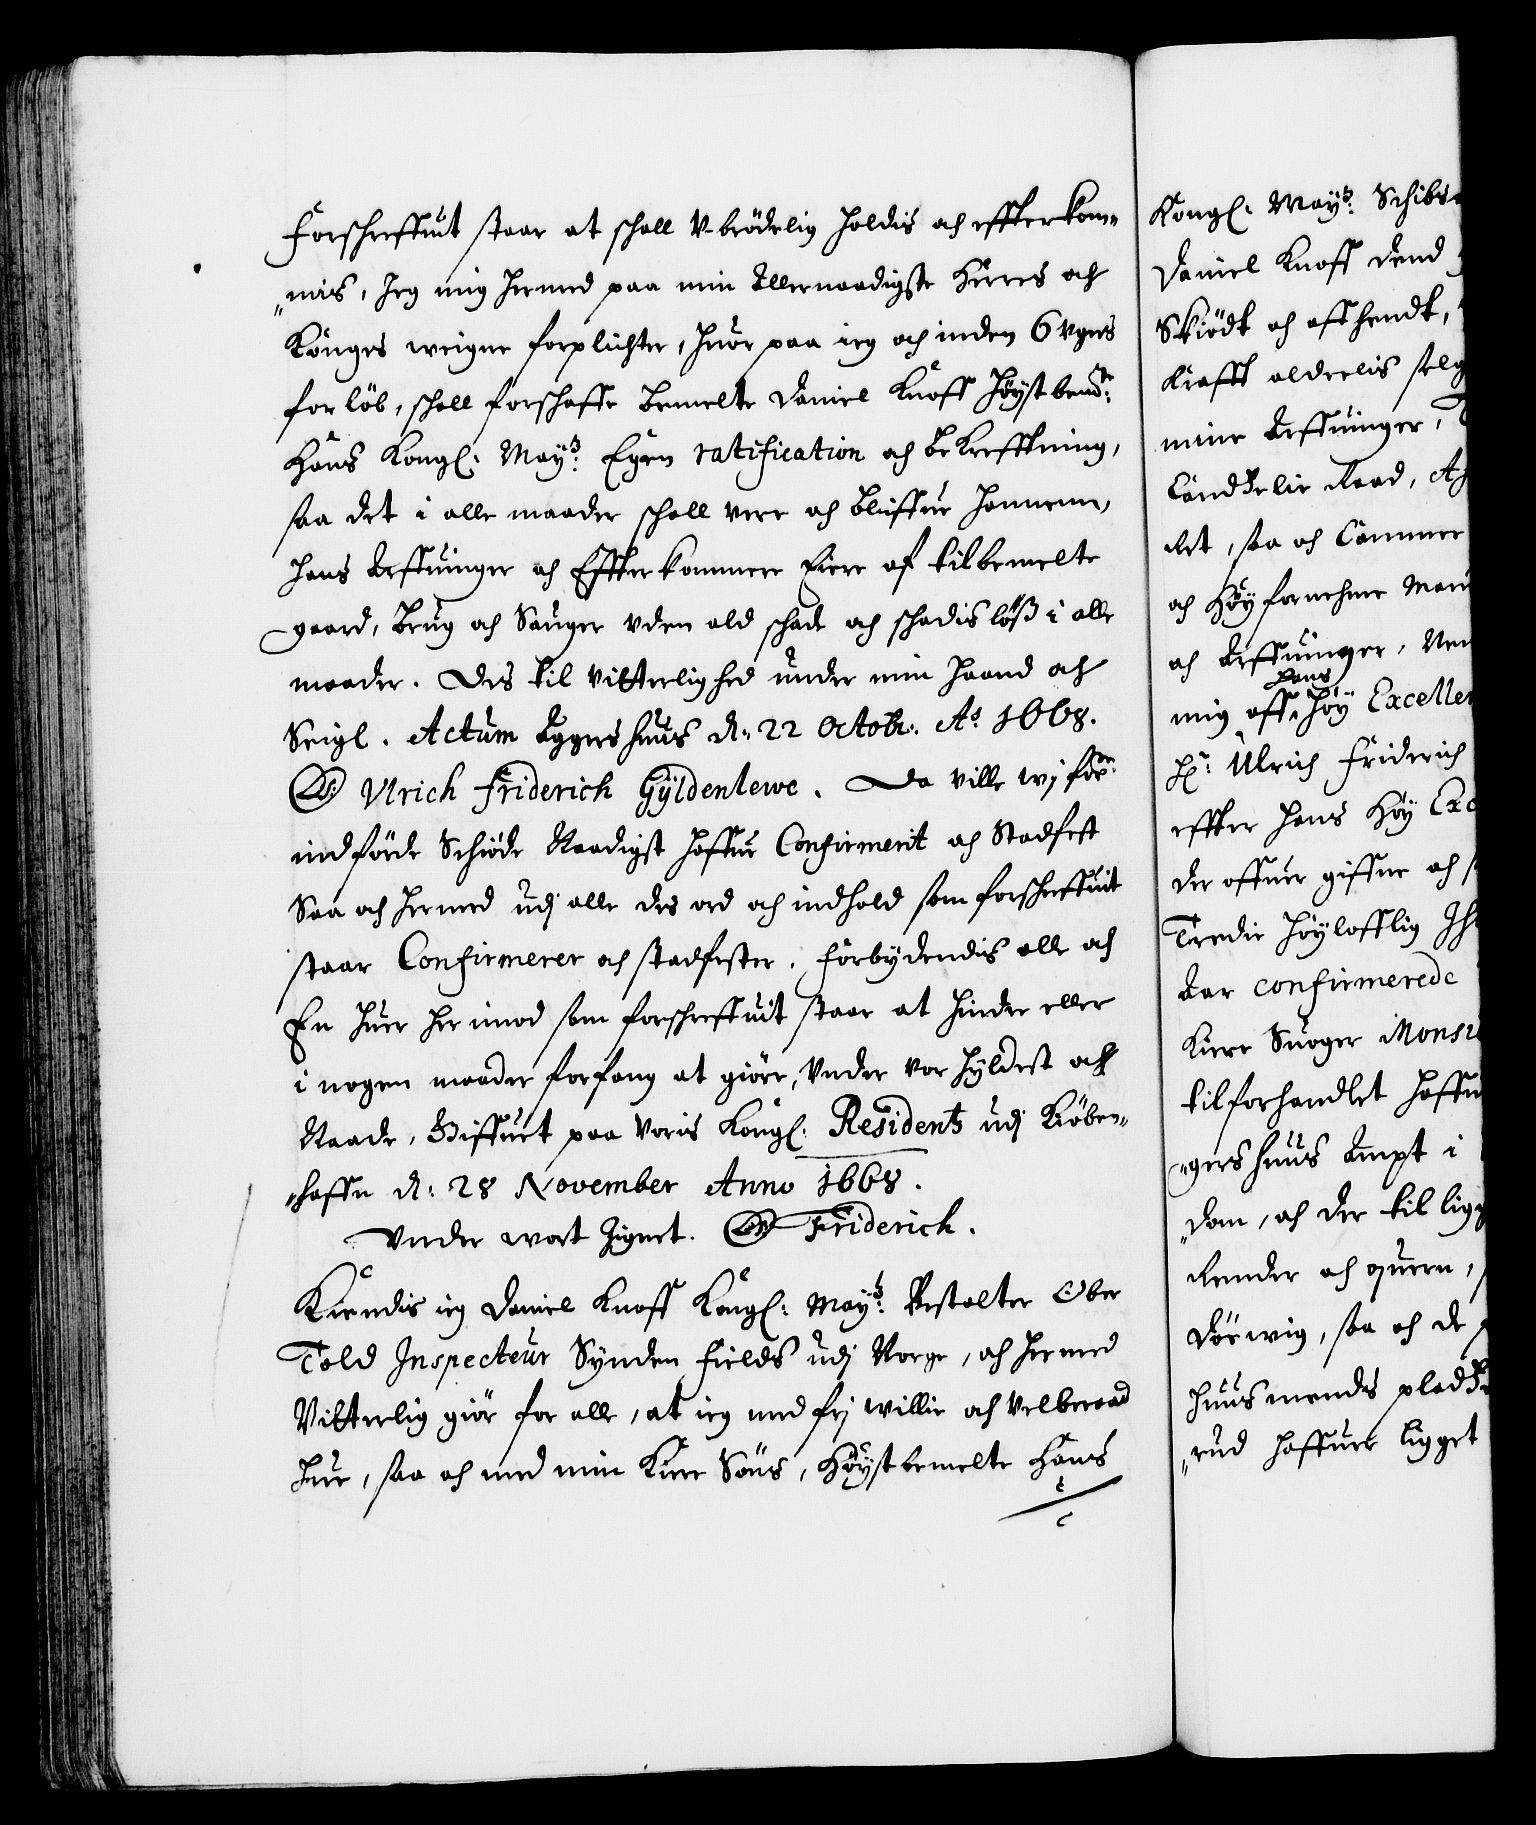 Forschreffuit staar at schall Vbrödelig holdis och effterkom-
"mis, Jeg mig hermed paa min Allernaadigste Herres och
Konges weigne forplichter, huor paa ieg och inden 6 vgers
forlöb, schall forschaffe bemelte Daniel Knoff Höystbemte:
Hans Kongl: Mayts: Egen ratification och bekrefftning,
saa det i alle maader schall vere och bliffue hannem,
hans Arffuinger och Effterkommere Eiere af tilbemelte
gaard, brug och Sauger vden ald schade och schadislöß i alle
maader. Des til Vitterlighed under min haand och
Seigl. Actum Aggershuus d: 22 Octobr. Ao 1668.
Ulrich Friderich Gÿldenlewe. Da ville wj forne:
indförde Schiöde Naadigst haffue Confirmerit och Stadfest
Saa och hermed udj alle des ord och indhold som forschreffuit
staar Confirmerer och stadfester. Forbydendis alle och
En huer her imod som forschreffuit staar at hindre eller
i nogen maader forfang at giöre, Vnder vor Hyldest och
Naade, Giffuet paa Voris Kongl: Residentz udj Kiöben-
"haffn d: 28 November Anno 1668.
Vnder wort Zignet. Friderich.
Kiendis ieg Daniel Knoff Kongl: Mayts: Bestalter Ober
Told Inspecteur Synden Fields udj Norge, och hermed
Vitterlig giör for alle, at ieg med frj willie och Velberaad
hue, saa och med min Kiere Söns, Höystbemelte Hans
Kongl: Mayts: Schibs
Daniel Knoff Dend
Skiödt och affhendt,
Krafft alderlis
mine Arffuinger,
Candtzelie Raad,
det, saa och Cammer
och Höyfornehme
och Arffuinger,
hans
mig aff Höy Excellen
Hr: Ulrich Friderich
effter hans Höy Exc
der offuer giffne och
Tredie Höylofflig
dar confirmerede
Kiere Suoger Mons
tilforhandlet haffu
"gershuus Ampt i
"dom, och der til ligg
Render och quern,
Dörwig, saa och de
huusmends pladz
"rud haffuer ligget